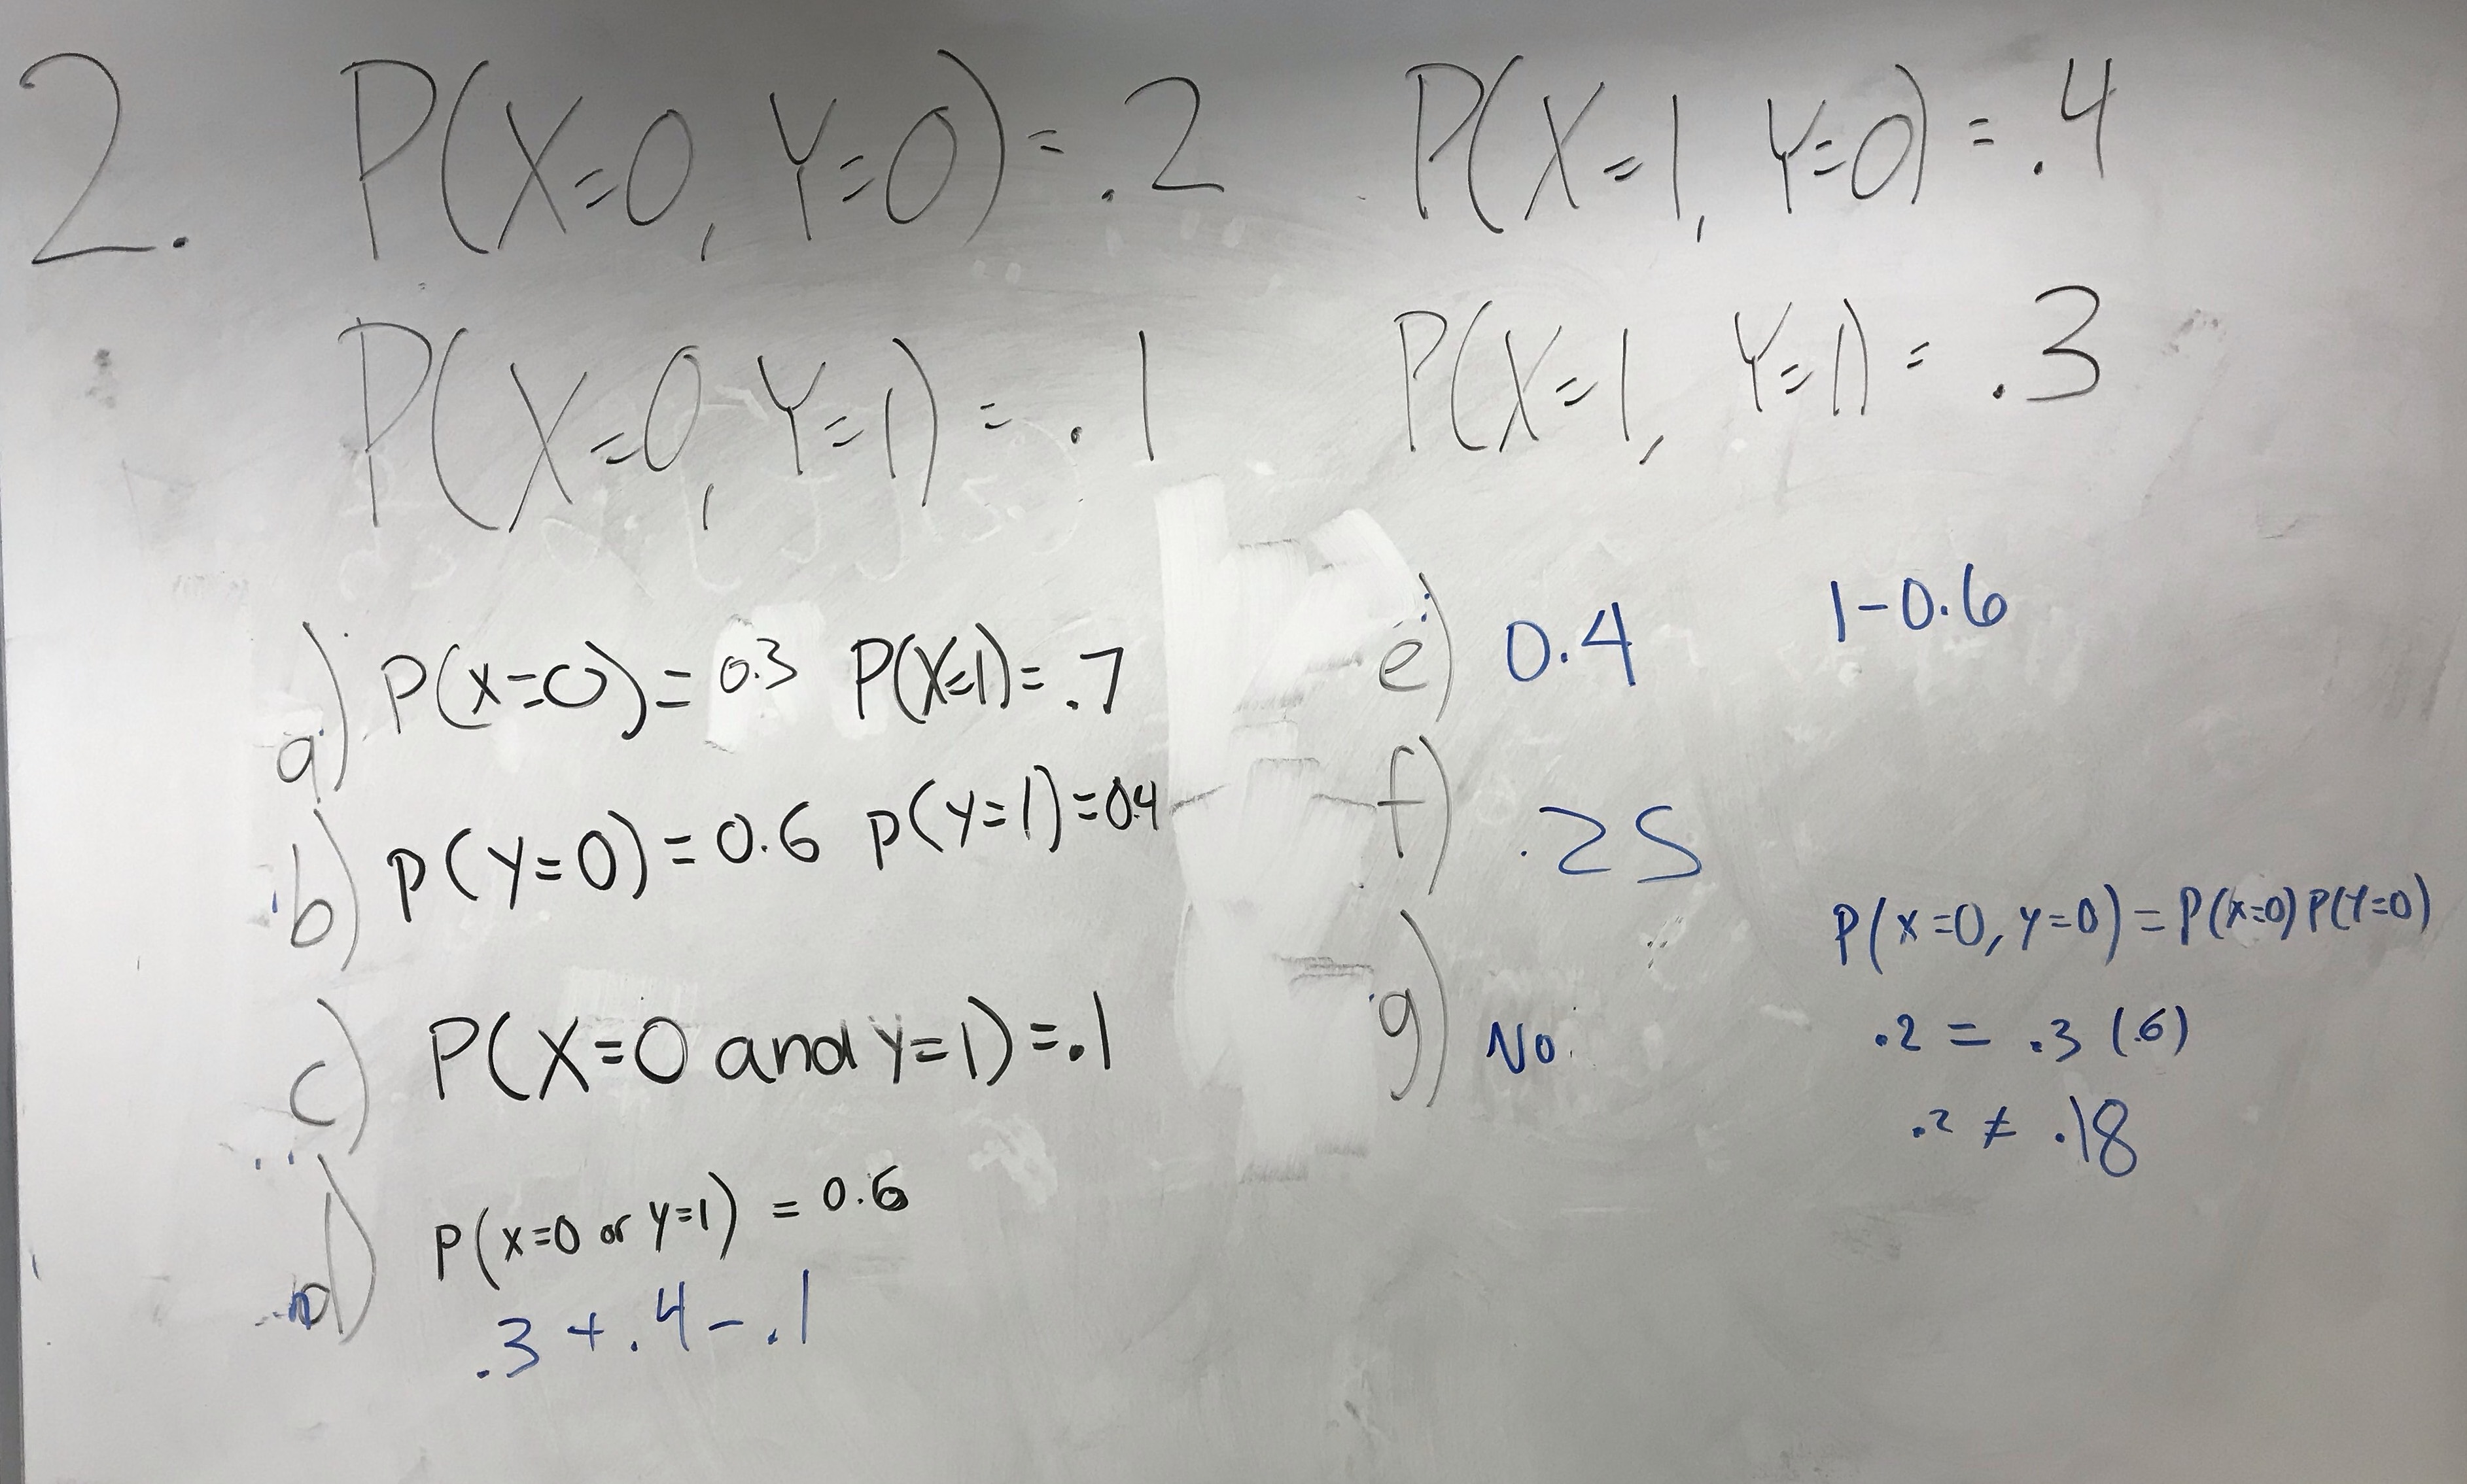 2. P(X=0, Y=0) = .2 P(X=1, Y=0) = .4
P(X=0, Y=1) = .1 P(X=1, Y=1) = .3
a) P(X=0) = 0.3 P(X=1) = .7
b) P(Y=0) = 0.6 P(Y=1) = 0.4
c) P(X=0 and Y=1) = .1
d) P(X=0 or Y=1) = 0.6
.3 + .4 - .1
e) 0.4 1-0.6
f) .25
g) No
P(X=0, Y=0) = P(X=0) P(Y=0)
.2 = .3 (.6)
.2 ≠ .18